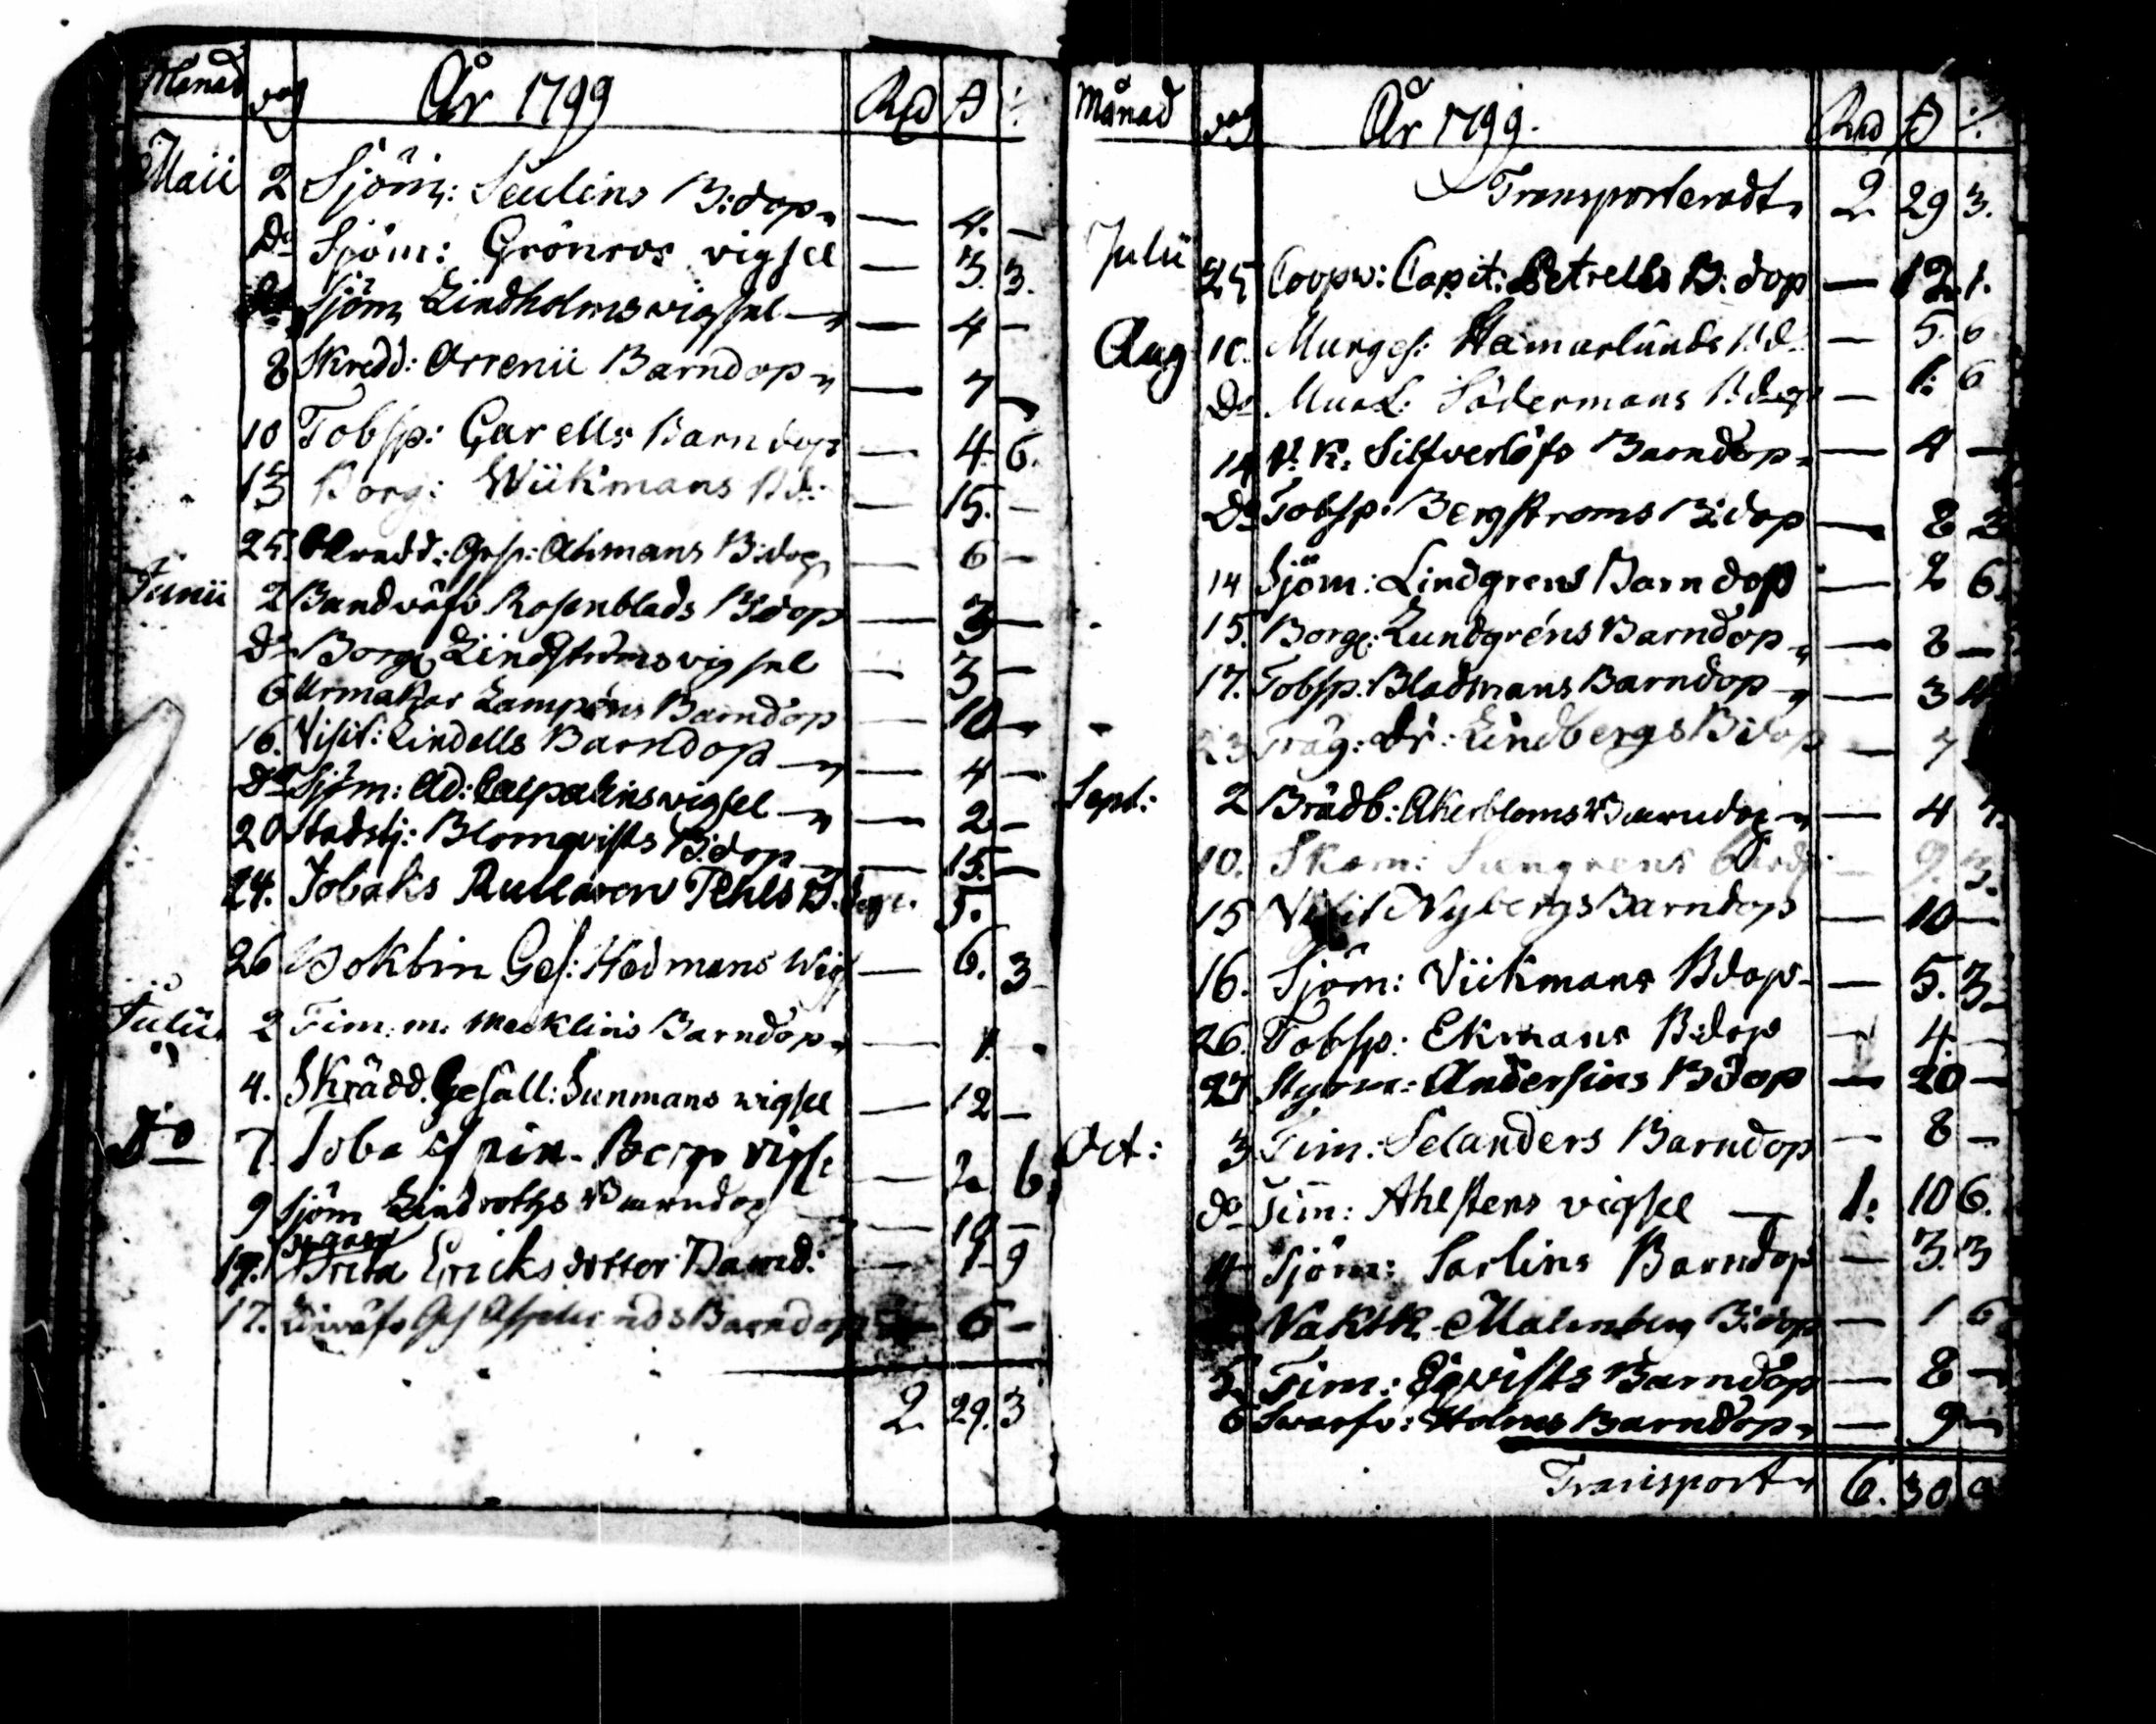 Månad dag År 1799 Rd ß
Maii 2 Sjöm: Seulins B:dop — 4. —
Do Sjöm: Grönros vigsel — 3. 3.
Sjöm Lindholms vigsel — 4 —
8 Skredd: Arrenii Barndop — 7
10 Tobsp: Garells Barndop — 4 6.
13 Borg: Wiikmans Bd: — 15. —
25. Ges: Ahmans B:dop — 6 —
Junii 2 Bandväfv Rosenblads B:dop — 3 —
Do Borg Lindströms vigsel — 3 —
6 Urmakar Lampéns Barndop — 10 —
16. Visit: Lindells Barndop — 4 —
Do Sjöm: Ad: vigsel — 2 —
20 Stadstj: Blomqvists B:dop — 15. —
24. Tobaks 5.
26 Bokbin Ges: Hedmans Wigs — 6. 3
Julii 2 Tim: m: Mecklins Barndop — 1.
4. Skrädd. Gesäll: Sunmans vigsel — 12 —
Do 7. Toba spin. Berg vigse — 2 6
9 Sjöm Lindroths Barndop — 10 —
19. Brita Ericksdotter Barnd: — 1 9
17. Ges Barndop 6 —
2 29. 3
Månad dag År 1799. Rd ß
Transporteradt 2 29 3.
Julii 25 Coopv: Capit: Petrells B: dop — 12. 1.
Aug 10. Murges: Hamarlunds Bd: — 5. 6
Do Mur Södermans B:dop — 1: 6
14 V. K. Silfverlöfs Barndop — 4 —
Do Tobsp: Bergstroms B:dop — 8
14 Sjöm: Lindgrens Barndop — 2 6
15. Borg: Lundgréns Barndop — 8 —
17. Tobsp: Bladmans Barndop — 3
23 Träg: Dr: Lindbergs B:dop — 7
Sept: 2 Brädb: Åkerbloms Barndop — 4
10. — 9. 3.
15 Visit Nybergs Barndop — 10 —
16. Sjöm: Viikmans Bdop — 5. 3
26. Tobsp: Ekmans B:dop — 4. —
27 Styrm: Andersins Bdop — 20 —
Oct: 3 Tim: Selanders Barndop — 8 —
do Tim: Ahlstens vigsel — 1: 10 6.
4 Sjöm: Sarlins Barndop — 3. 3
Vaktk. Malmberg B:dop — 1 6
5. Tim: Eqvists Barndop — 8 —
6 Svarfv: Holms Barndop — 9 —
Transport 6. 30